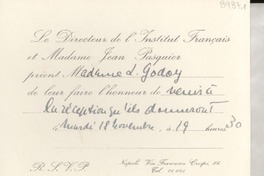 8989.1
Le Directeur de l'Institut Français
et Madame Jean Pasquier
prient Madame L. Godoy
de leur faire l'honneur de venir à
la réception qu'ils donneront
Mardi 18 Novembre à 19 heures 30
R.S.V.P.
Napoli Via Francesco Crispi, 86
Tel.